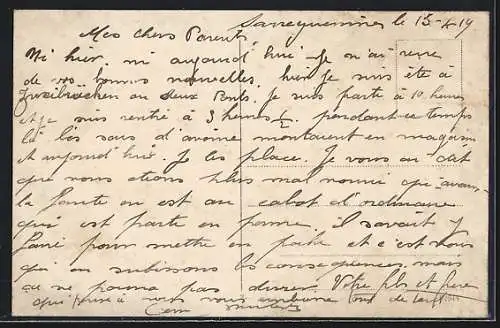 Sarreguemines le 15-4-19
Mes chers Parents
Ni hier, ni aujourd'hui Je n'ai reçu
de vos bonnes nouvelles. hier Je suis été à
Zweibrücken ou deux Ponts. Je suis parti à 10 heures
et je suis rentré à 3 heures ½. pendant ce temps
là les sacs d'avoine montaient en magasin
et aujourd'hui. Je les place. Je vous ai dit
que nous étions plus mal nourri qu'avant
la faute en est au cabot d'ordinaire
qui est parti en perme. il savait y
faire pour mettre en
et c'est nous
qui en subissons les conséquences, mais
ça ne pourra pas durer. Votre fils et frère
qui pense à vous vous embrasse tous de